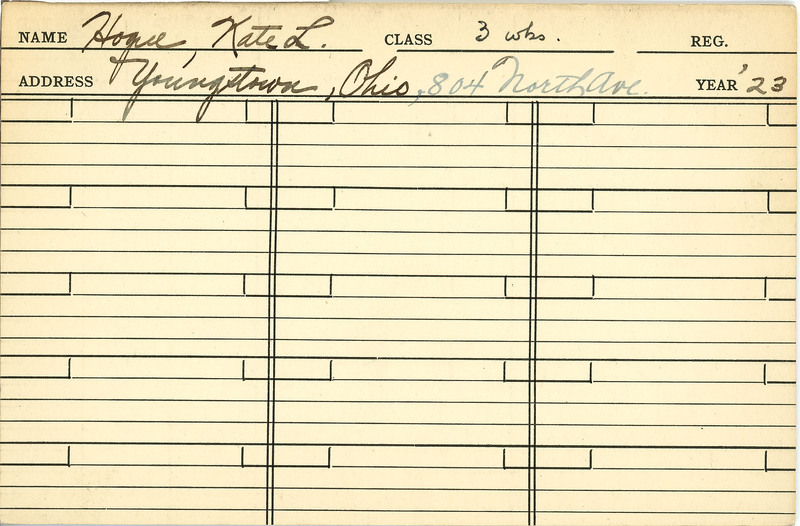 NAME Hogue, Kate L. CLASS 3 wks. REG.
ADDRESS Youngstown, Ohio, 804 North Ave. YEAR '23